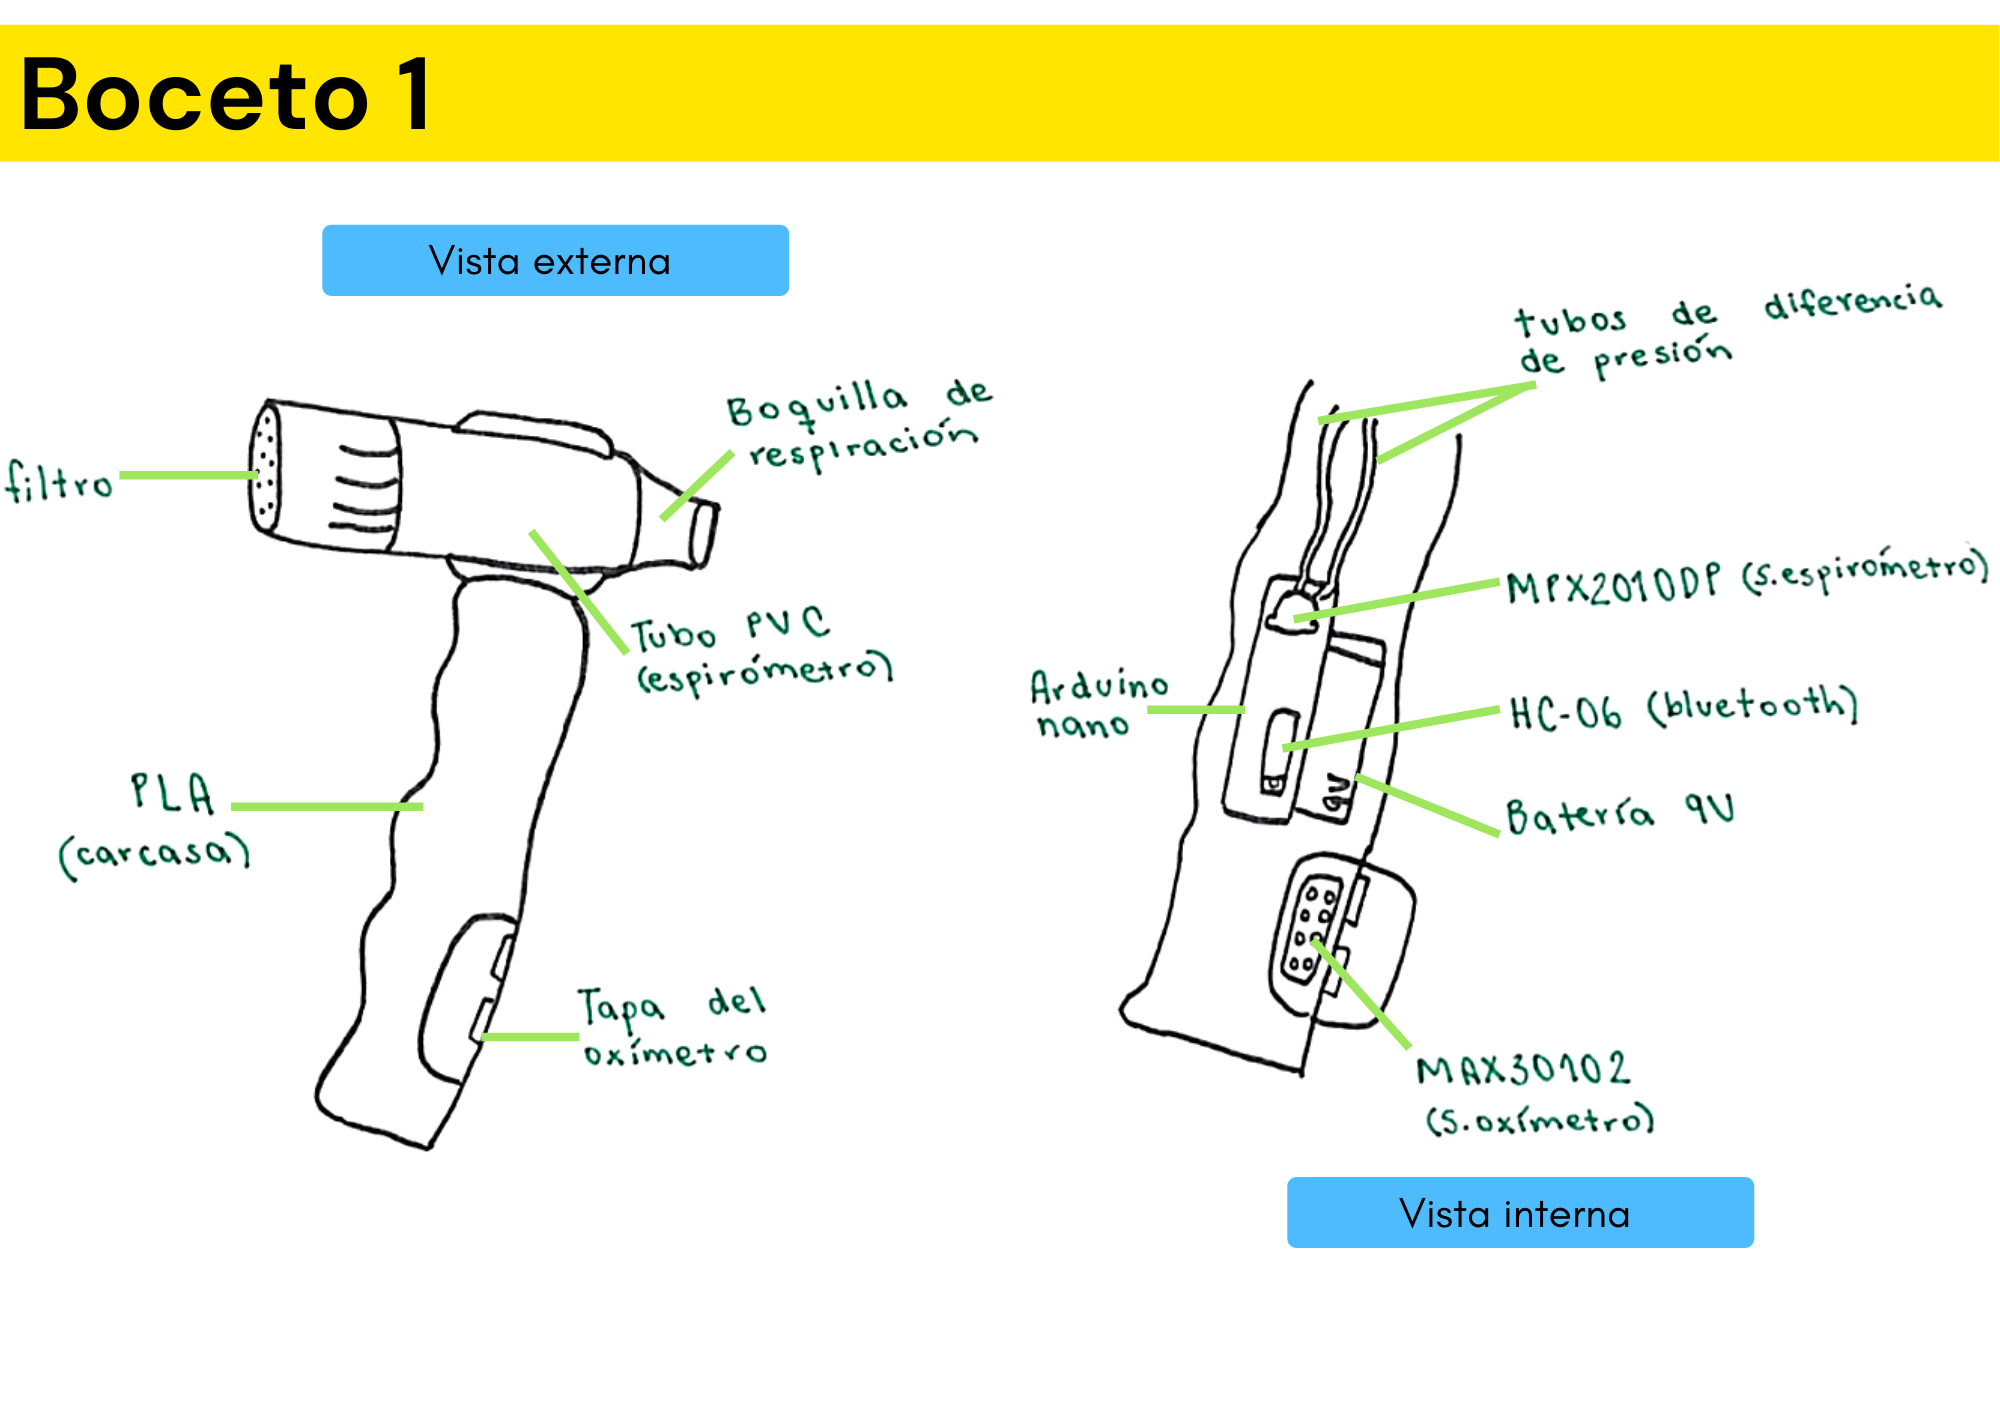 Boceto 1
Vista externa
filtro
Boquilla de
respiración
Tubo PVC
(espirómetro)
PLA
(carcasa)
Tapa del
oxímetro
tubos de diferencia
de presión
MPX2010DP (s.espirómetro)
Arduino
nano
HC-06 (bluetooth)
9V
Batería 9V
MAX30102
(s.oxímetro)
Vista interna